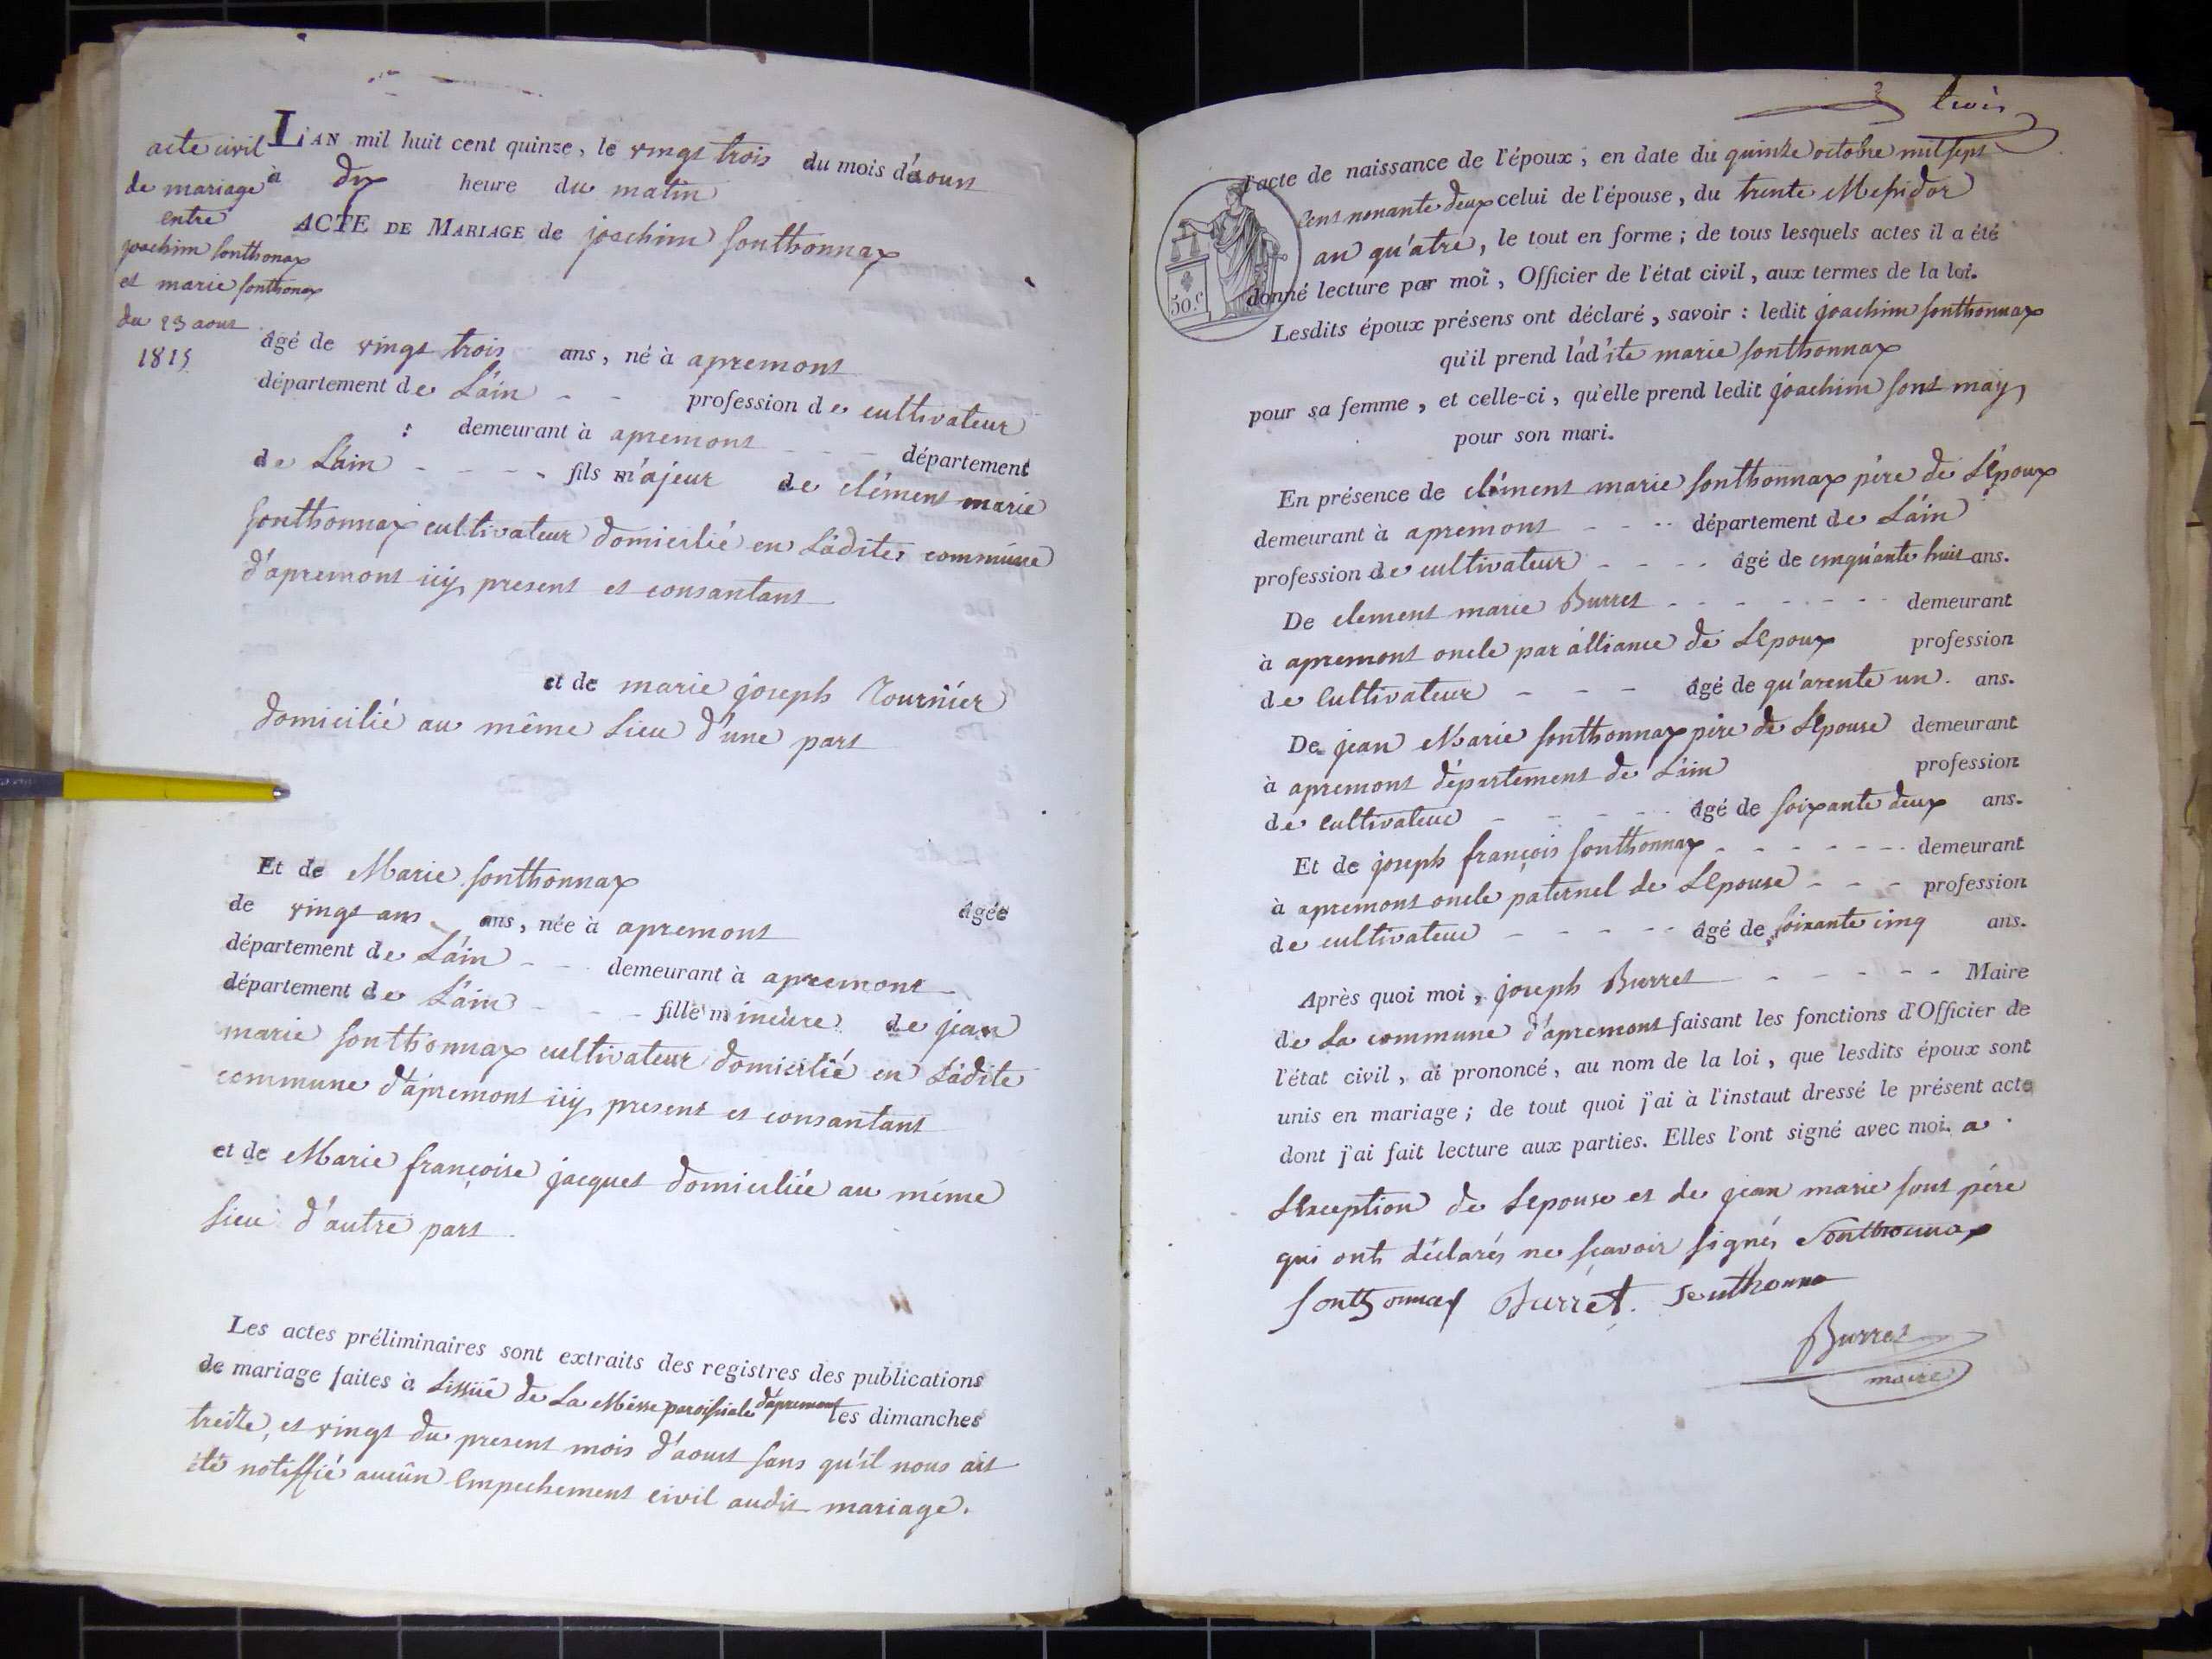 acte civil
de mariage
entre
joachim sonthonax
et marie sonthonax
du 23 aout
1815
L'AN mil huit cent quinze, le vingt trois du mois d'aoust
à dix heure du matin
ACTE DE MARIAGE de joachim sonthonnax
âgé de vingt trois ans, né à apremont
département de L'ain - - profession de cultivateur
: demeurant à apremont - - - département
de L'ain - - - - fils majeur de clément marie
sonthonnax cultivateur domicilié en Ladite commune
d'apremont icy present et consantant
et de marie joseph Tournier
domicilié au même Lieu d'une part
Et de Marie sonthonnax âgée
de vingt ans ans, née à apremont
département de L'ain - - demeurant à apremont
département de L'ain - - - fille mineure de jean
marie sonthonnax cultivateur domicilié en Ladite
commune d'apremont icy present et consantant
et de Marie françoise jacquet domiciliée au même
Lieu d'autre part
Les actes préliminaires sont extraits des registres des publications
de mariage faites à Lissüe de La Messe paroissiale d'apremont les dimanches
treize, et vingt du present mois d'aoust sans qu'il nous ait
été notiffié aucun Empechement civil audit mariage.
3 trois
l'acte de naissance de l'époux, en date du quinze octobre mil sept
Cent nonante deux celui de l'épouse, du trente Messidor
an qu'atre, le tout en forme ; de tous lesquels actes il a été
donné lecture par moi, Officier de l'état civil, aux termes de la loi.
50.c
Lesdits époux présens ont déclaré, savoir : ledit joachim sonthonnax
qu'il prend lad'ite marie sonthonnax
pour sa femme, et celle-ci, qu'elle prend ledit joachim sont may
pour son mari.
En présence de clément marie sonthonnax père de L'Epoux
demeurant à apremont - - - département de L'ain
profession de cultivateur - - - - âgé de cinqu'ante huit ans.
De clement marie Burret - - - - - - - demeurant
à apremont oncle par alliance de L'Epoux profession
de Cultivateur - - - âgé de qu'arente un. ans.
De jean Marie sonthonnax père de L'Epouse demeurant
à apremont département de L'ain profession
de cultivateur - - - - - âgé de soixante deux ans.
Et de joseph françois sonthonnax - - - - - - - demeurant
à apremont oncle paternel de L'Epouse - - - profession
de cultivateur - - - - - âgé de soixante cinq ans.
Après quoi moi, joseph Burret - - - - - - Maire
de La commune d'apremont faisant les fonctions d'Officier de
l'état civil, ai prononcé, au nom de la loi, que lesdits époux sont
unis en mariage ; de tout quoi j'ai à l'instaut dressé le présent acte
dont j'ai fait lecture aux parties. Elles l'ont signé avec moi a
L'Exception de L'epouse et de jean marie sont père
qui ont déclarés ne sçavoir signés Sonthonnax
Sonthonnax Burret. Sonthonna
Burret
maire